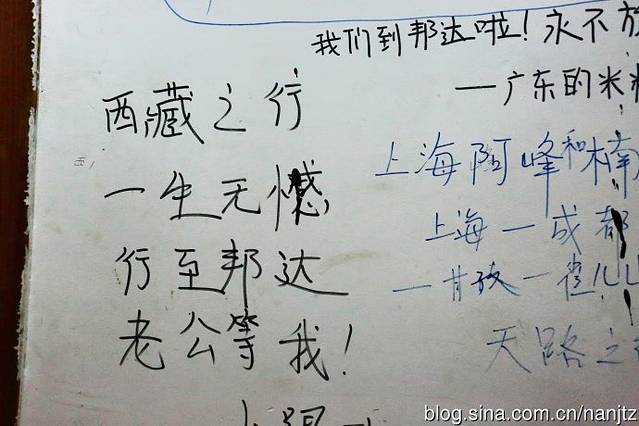 我们到邦达啦!永不放
一广东的米
西藏之行
一生无憾
行至邦达
老公等我!
上海阿峰和楠
上海一成都
一甘孜一
天路之
blog.sina.com.cn/nanjtz